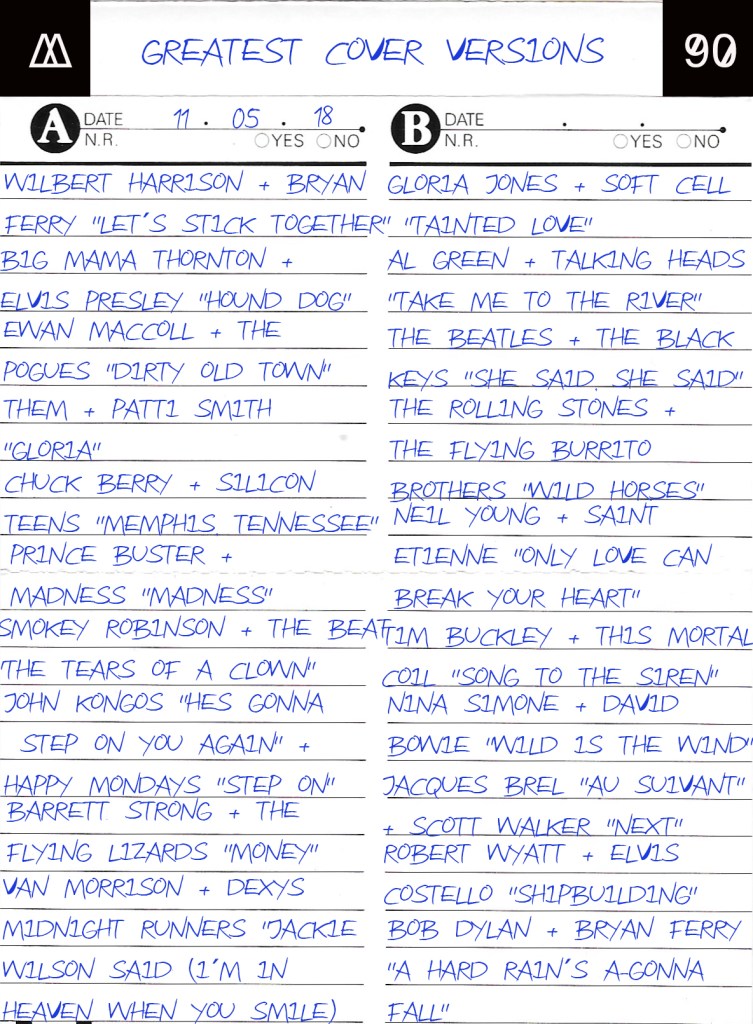 GREATEST COVER VERSIONS
90
A DATE 11 . 05 . 18
N.R. YES NO
WILBERT HARRISON + BRYAN
FERRY "LET'S STICK TOGETHER"
BIG MAMA THORNTON +
ELVIS PRESLEY "HOUND DOG"
EWAN MACCOLL + THE
POGUES "DIRTY OLD TOWN"
THEM + PATTI SMITH
"GLORIA"
CHUCK BERRY + SILICON
TEENS "MEMPHIS TENNESSEE"
PRINCE BUSTER +
MADNESS "MADNESS"
SMOKEY ROBINSON + THE BEAT
THE TEARS OF A CLOWN"
JOHN KONGOS "HES GONNA
STEP ON YOU AGAIN" +
HAPPY MONDAYS "STEP ON"
BARRETT STRONG + THE
FLYING LIZARDS "MONEY"
VAN MORRISON + DEXYS
MIDNIGHT RUNNERS "JACKIE
WILSON SAID (I'M IN
HEAVEN WHEN YOU SMILE)
B DATE . .
N.R. YES NO
GLORIA JONES + SOFT CELL
"TAINTED LOVE"
AL GREEN + TALKING HEADS
"TAKE ME TO THE RIVER"
THE BEATLES + THE BLACK
KEYS "SHE SAID, SHE SAID"
THE ROLLING STONES +
THE FLYING BURRITO
BROTHERS "WILD HORSES"
NEIL YOUNG + SAINT
ETIENNE "ONLY LOVE CAN
BREAK YOUR HEART"
TIM BUCKLEY + THIS MORTAL
COIL "SONG TO THE SIREN"
NINA SIMONE + DAVID
BOWIE "WILD IS THE WIND"
JACQUES BREL "AU SUIVANT"
+ SCOTT WALKER "NEXT"
ROBERT WYATT + ELVIS
COSTELLO "SHIPBUILDING"
BOB DYLAN + BRYAN FERRY
"A HARD RAIN'S A-GONNA
FALL"